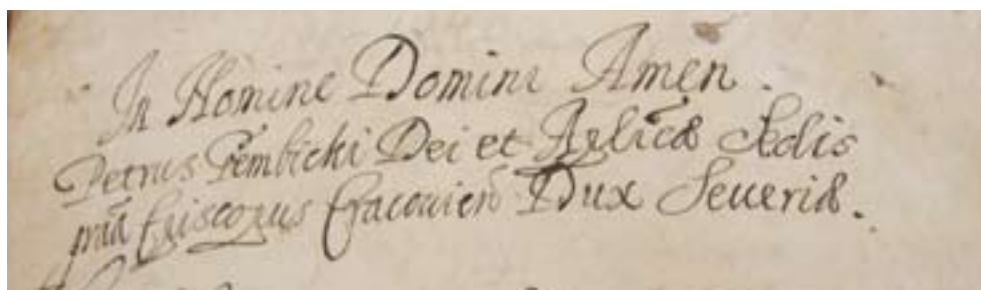 In Nomine Domini Amen.
Petrus Gembicki Dei et Aplicæ Sedis
grãa Episcopus Cracovien Dux Severiæ.